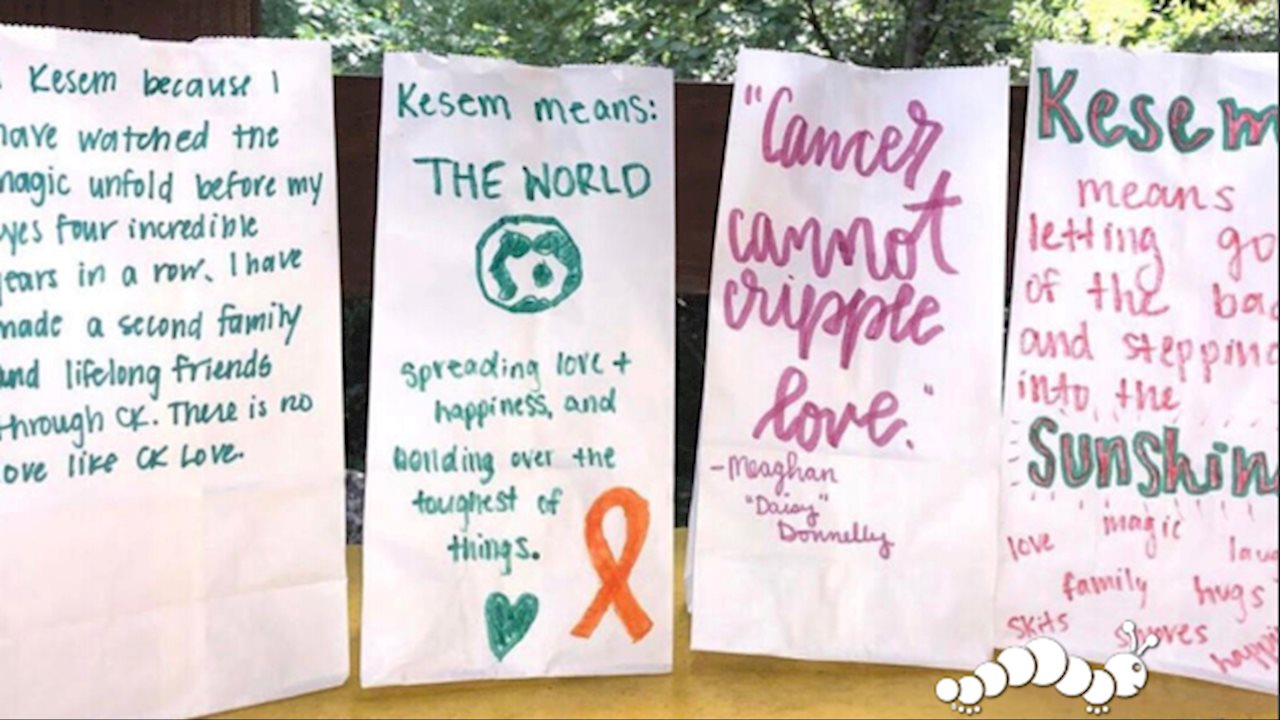 Kesem because I
have watched the
magic unfold before my
eyes four incredible
years in a row. I have
made a second family
and lifelong friends
through CK. There is no
love like CK Love.
Kesem means:
THE WORLD
spreading love +
happiness, and
bonding over the
toughest of
things.
"Cancer
cannot
cripple
love."
-Meaghan
"Daisy"
Donnelly
Kesem
means
letting go
of the bad
and stepping
into the
Sunshin
magic
love lau
family hugs
skits smores
happi